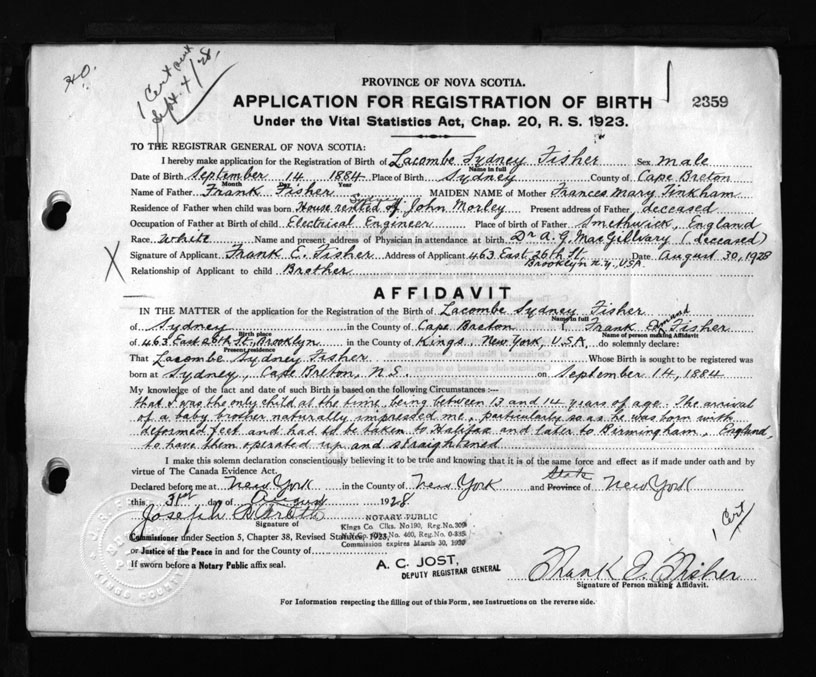 H.O.
1 Cert sent
Sept. 4/28.
PROVINCE OF NOVA SCOTIA.
APPLICATION FOR REGISTRATION OF BIRTH
2359
Under the Vital Statistics Act, Chap. 20, R. S. 1923.
TO THE REGISTRAR GENERAL OF NOVA SCOTIA:
I hereby make application for the Registration of Birth of Lacombe Sydney Fisher Sex male
Name in full
Date of Birth September 14 1884 Place of Birth Sydney County of Cape Breton
Month Day Year
Name of Father Frank Fisher MAIDEN NAME of Mother Frances Mary Tinkham
Residence of Father when child was born House rented of John Morley Present address of Father deceased
Occupation of Father at Birth of child Electrical Engineer Place of birth of Father Smethwick, England
Race White Name and present address of Physician in attendance at birth Dr A. G. MacGillvary (deceased)
Signature of Applicant Frank E. Fisher Address of Applicant 463 East 26th St. Brooklyn N.Y. USA Date August 30, 1928
Relationship of Applicant to child Brother
AFFIDAVIT
IN THE MATTER of the application for the Registration of the Birth of Lacombe Sydney Fisher
Name in full
of Sydney in the County of Cape Breton I, Frank Fisher
Birth place Name of person making Affidavit
of 463 East 26th St, Brooklyn in the County of Kings, New York, U.S.A, do solemnly declare:
Present residence
That Lacombe Sydney Fisher Whose Birth is sought to be registered was
born at Sydney, Cape Breton, N.S. on September 14, 1884
My knowledge of the fact and date of such Birth is based on the following Circumstances :—
that I was the only child at the time, being between 13 and 14 years of age. The arrival
of a baby brother naturally impressed me, particularly so as he was born with
deformed feet and had to be taken to Halifax and later to Birmingham, England,
to have them operated up and straightened
I make this solemn declaration conscientiously believing it to be true and knowing that it is of the same force and effect as if made under oath and by
virtue of The Canada Evidence Act.
State
Declared before me at New York in the County of New York and Province of New York
this 31st day of August 1928
Joseph
Signature of NOTARY PUBLIC
Kings Co. Clks. No 190, Reg. No. 309
Commissioner under Section 5, Chapter 38, Revised Statutes, 1923,
N.Y. Co. No. 460, Reg. No.
Commission expires March 30, 1930
or Justice of the Peace in and for the County of
If sworn before a Notary Public affix seal.
A. C. JOST,
DEPUTY REGISTRAR GENERAL
1 Cert
Frank E. Fisher
Signature of Person making Affidavit.
KINGS COUNTY
For Information respecting the filling out of this Form, see Instructions on the reverse side.